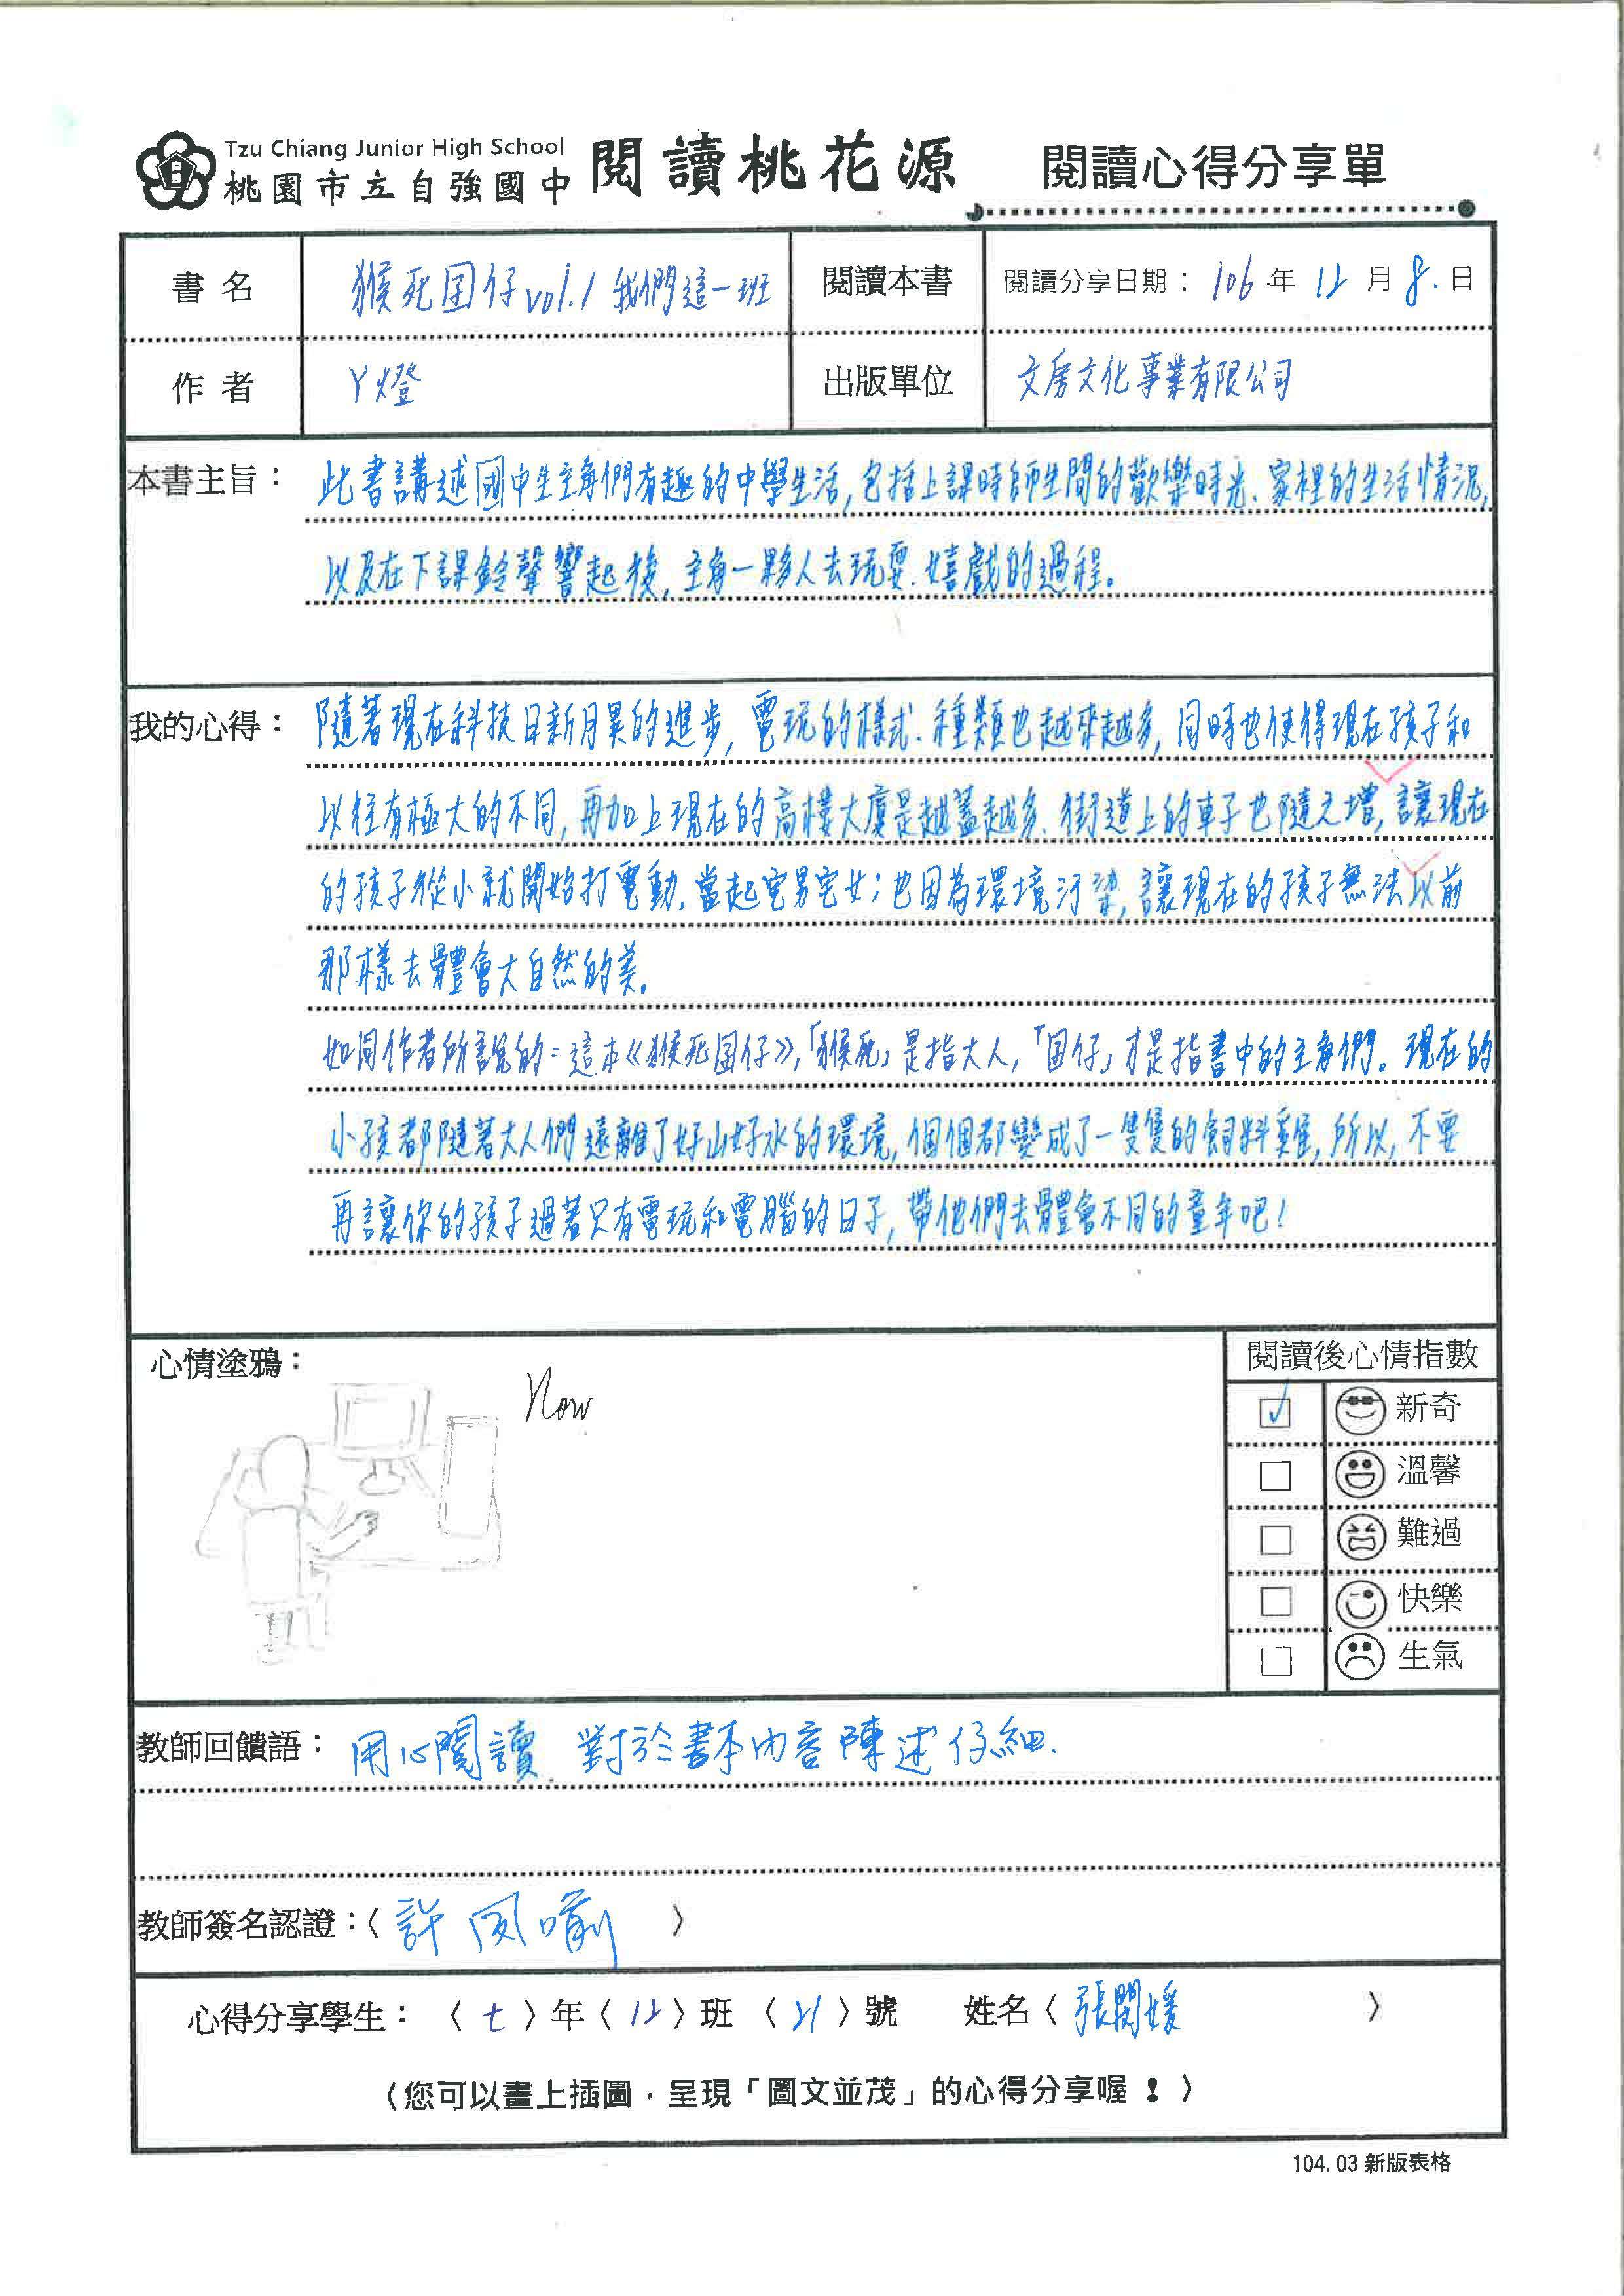 Tzu Chiang Junior High School
桃園市立自強國中 閱讀桃花源 閱讀心得分享單
書名 猴死囝仔vol.1 我們這一班 閱讀本書 閱讀分享日期：106年12月8.日
作者 ㄚ燈 出版單位 文房文化事業有限公司
本書主旨：此書講述國中生主角們有趣的中學生活,包括上課時師生間的歡樂時光、家裡的生活情況,
以及在下課鈴聲響起後,主角一夥人去玩耍、嬉戲的過程。
我的心得：隨著現在科技日新月異的進步,電玩的樣式、種類也越來越多,同時也使得現在孩子和
以往有極大的不同,再加上現在的高樓大廈是越蓋越多、街道上的車子也隨之增,讓現在
的孩子從小就開始打電動,當起宅男宅女;也因為環境汙染,讓現在的孩子無法以前
那樣去體會大自然的美。
如同作者所說的:這本《猴死囝仔》,「猴死」是指大人,「囝仔」才是指書中的主角們。現在的
小孩都隨著大人們遠離了好山好水的環境,個個都變成了一隻隻的飼料雞,所以,不要
再讓你的孩子過著只有電玩和電腦的日子,帶他們去體會不同的童年吧!
心情塗鴉： Now 閱讀後心情指數
新奇
溫馨
難過
快樂
生氣
教師回饋語：用心閱讀、對於書本內容陳述仔細.
教師簽名認證：〈許鳳喻〉
心得分享學生：〈七〉年〈12〉班〈21〉號 姓名〈張閔媛〉
〈您可以畫上插圖，呈現「圖文並茂」的心得分享喔！〉
104.03新版表格